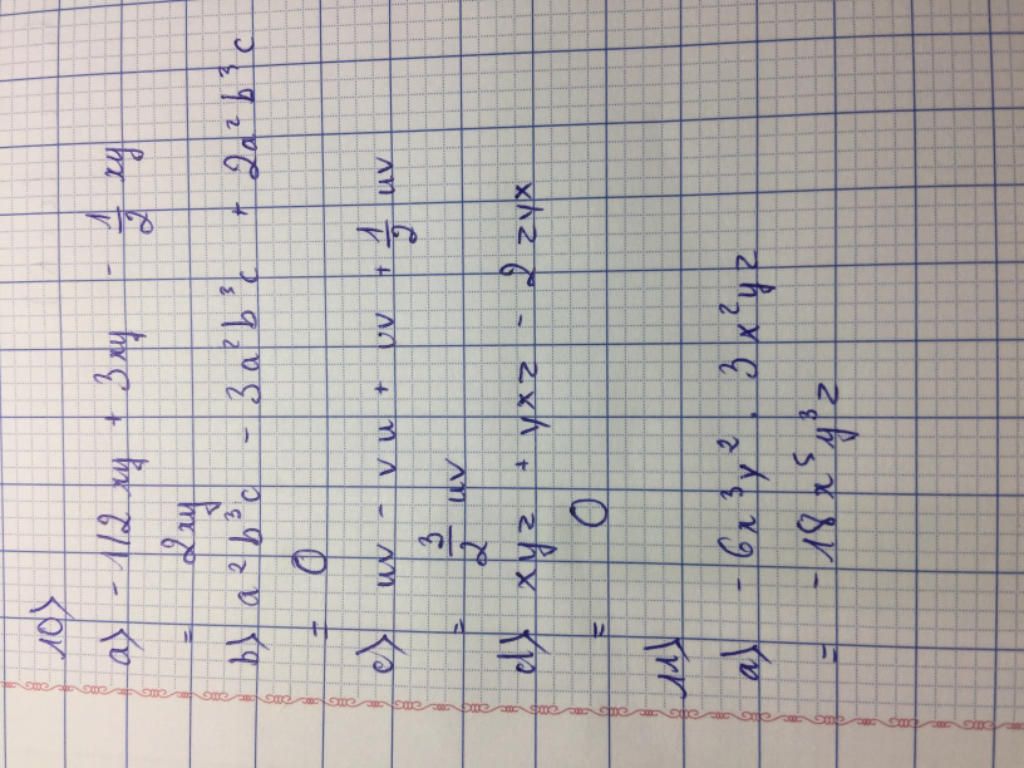 10)
a) - 1/2 xy + 3xy - 1/2 xy
= 2xy
b) a²b³c - 3a²b³c + 2a²b³c
= 0
c) uv - vu + uv + 1/2 uv
= 3/2 uv
d) xyz + yxz - 2 zyx
= 0
11)
a) - 6x³y² . 3x²yz
= - 18x⁵y³z